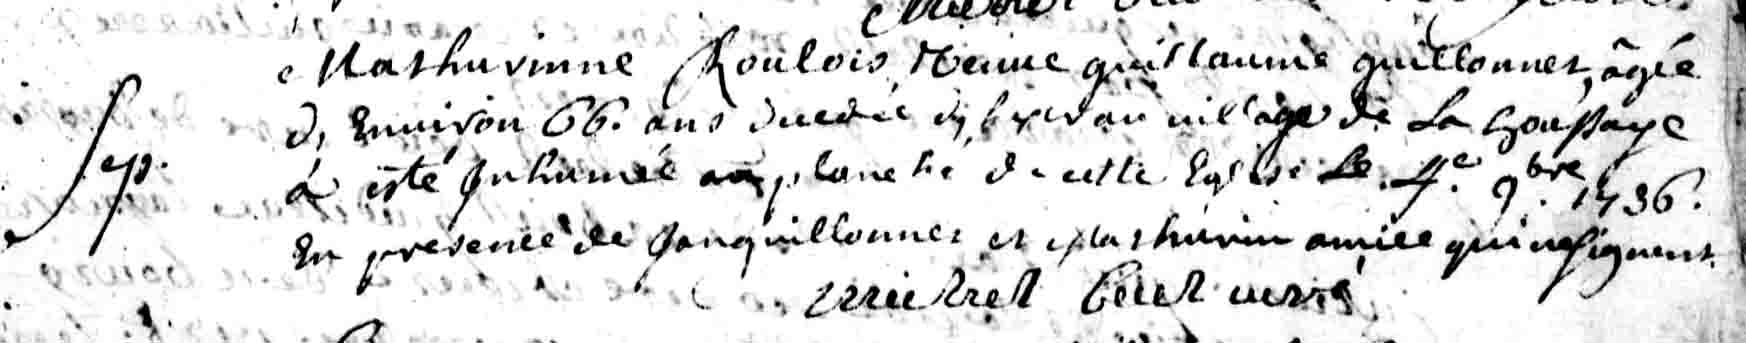 Mathurinne Roulois Veuve guillaume guillonnet, âgée
d, Environ 66. ans decedée d, hyer au village de La houssaye
Sep. a esté Inhumée au planché de cette Eglise Le 4e. 9bre. 1736.
En presence de Jan guillonnet et Mathurin amice qui ne signent.
curé